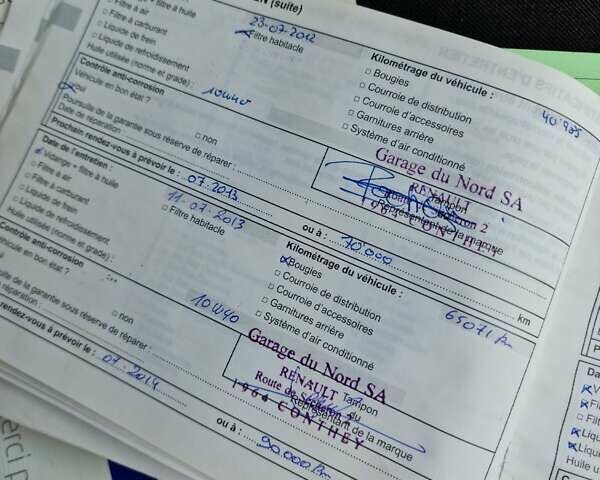 (suite)
Filtre à air
Filtre à carburant
Liquide de frein
Liquide de refroidissement
Huile utilisée (norme et grade) : 10W40
Contrôle anti-corrosion
Véhicule en bon état ?
oui
non
Poursuite de la garantie sous réserve de réparer :
Date de réparation :
Prochain rendez-vous à prévoir le : 07.2013
ou à : 70000 km
23-07-2012
Filtre habitacle
Kilométrage du véhicule :
Bougies
Courroie de distribution
Courroie d'accessoires
Garnitures arrière
Système d'air conditionné
Garage du Nord SA
RENAULT
Tampon
Représentant de la marque
CONTHEY
Date de l'entretien :
11.07.2013
Vidange + filtre à huile
Filtre à air
Filtre à carburant
Liquide de frein
Liquide de refroidissement
Huile utilisée (norme et grade) : 10W40
Contrôle anti-corrosion
Véhicule en bon état ?
non
suite de la garantie sous réserve de réparer :
réparation :
rendez-vous à prévoir le : 07.2014
ou à : 90.000 km
Filtre habitacle
Kilométrage du véhicule :
65071 km
Bougies
Courroie de distribution
Courroie d'accessoires
Garnitures arrière
Système d'air conditionné
Garage du Nord SA
RENAULT
Tampon
Route de
Représentant de la marque
1964 CONTHEY
D'ENTRETIEN